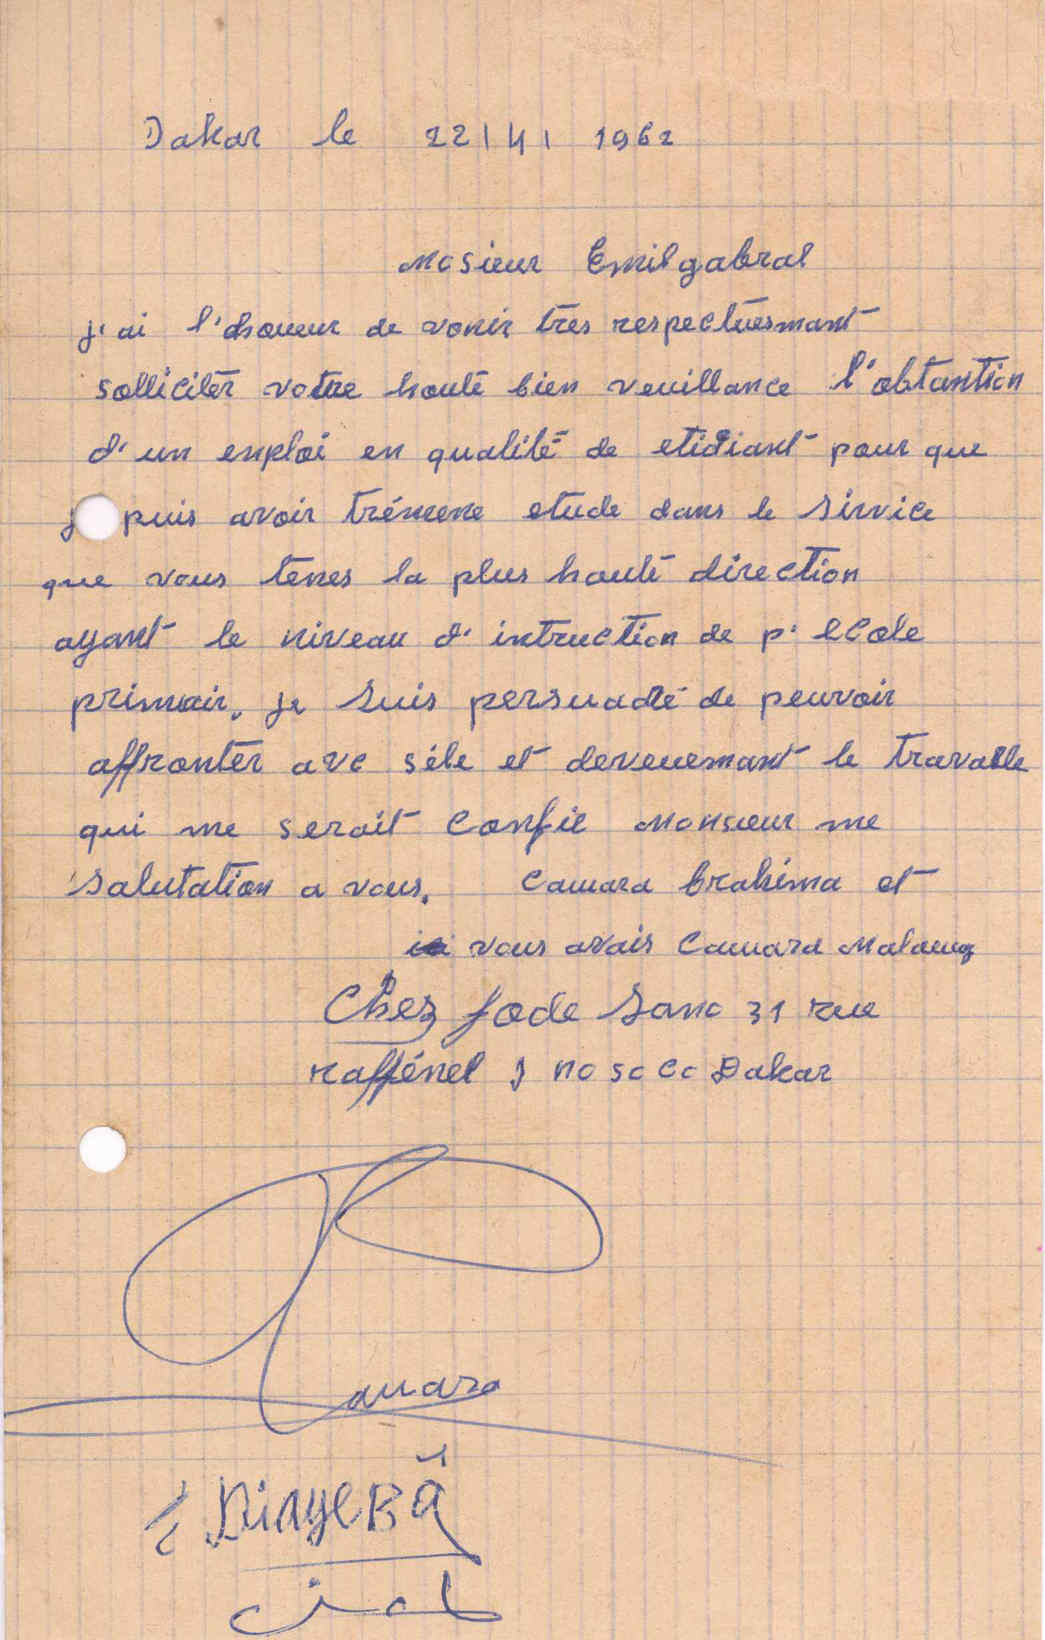 Dakar le 22/4/1962
Mosieur Emilgabral
j'ai l'honeur de vonir très respectuesmant
solliciter votre houte bien veuillance l'obtantion
d'un emploi en qualité de etidiant pour que
j puis avoir etude dans le sirvice
que vous tenes la plus haute direction
ayant le niveau d'intruction de p. ecole
primair. je suis persuadé de peuvoir
affronter ave séle et devenemant le travalle
qui me serait confie Monsieur me
salutation a vous. Camara brahima et
vous avais Camara Malang
Chez fode Sano 31 rue
raffénel J no so co Dakar
Camara